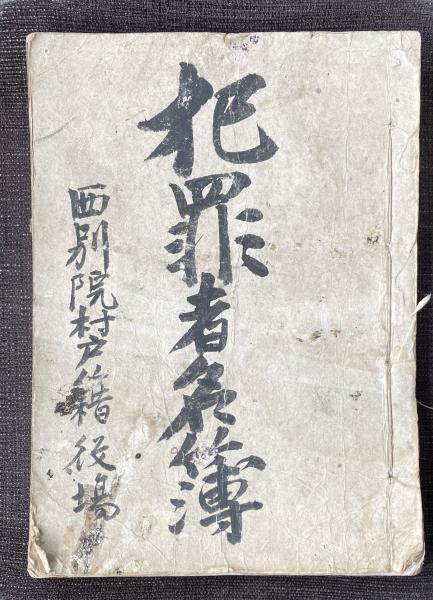 犯罪者名簿
西別院村戸籍役場